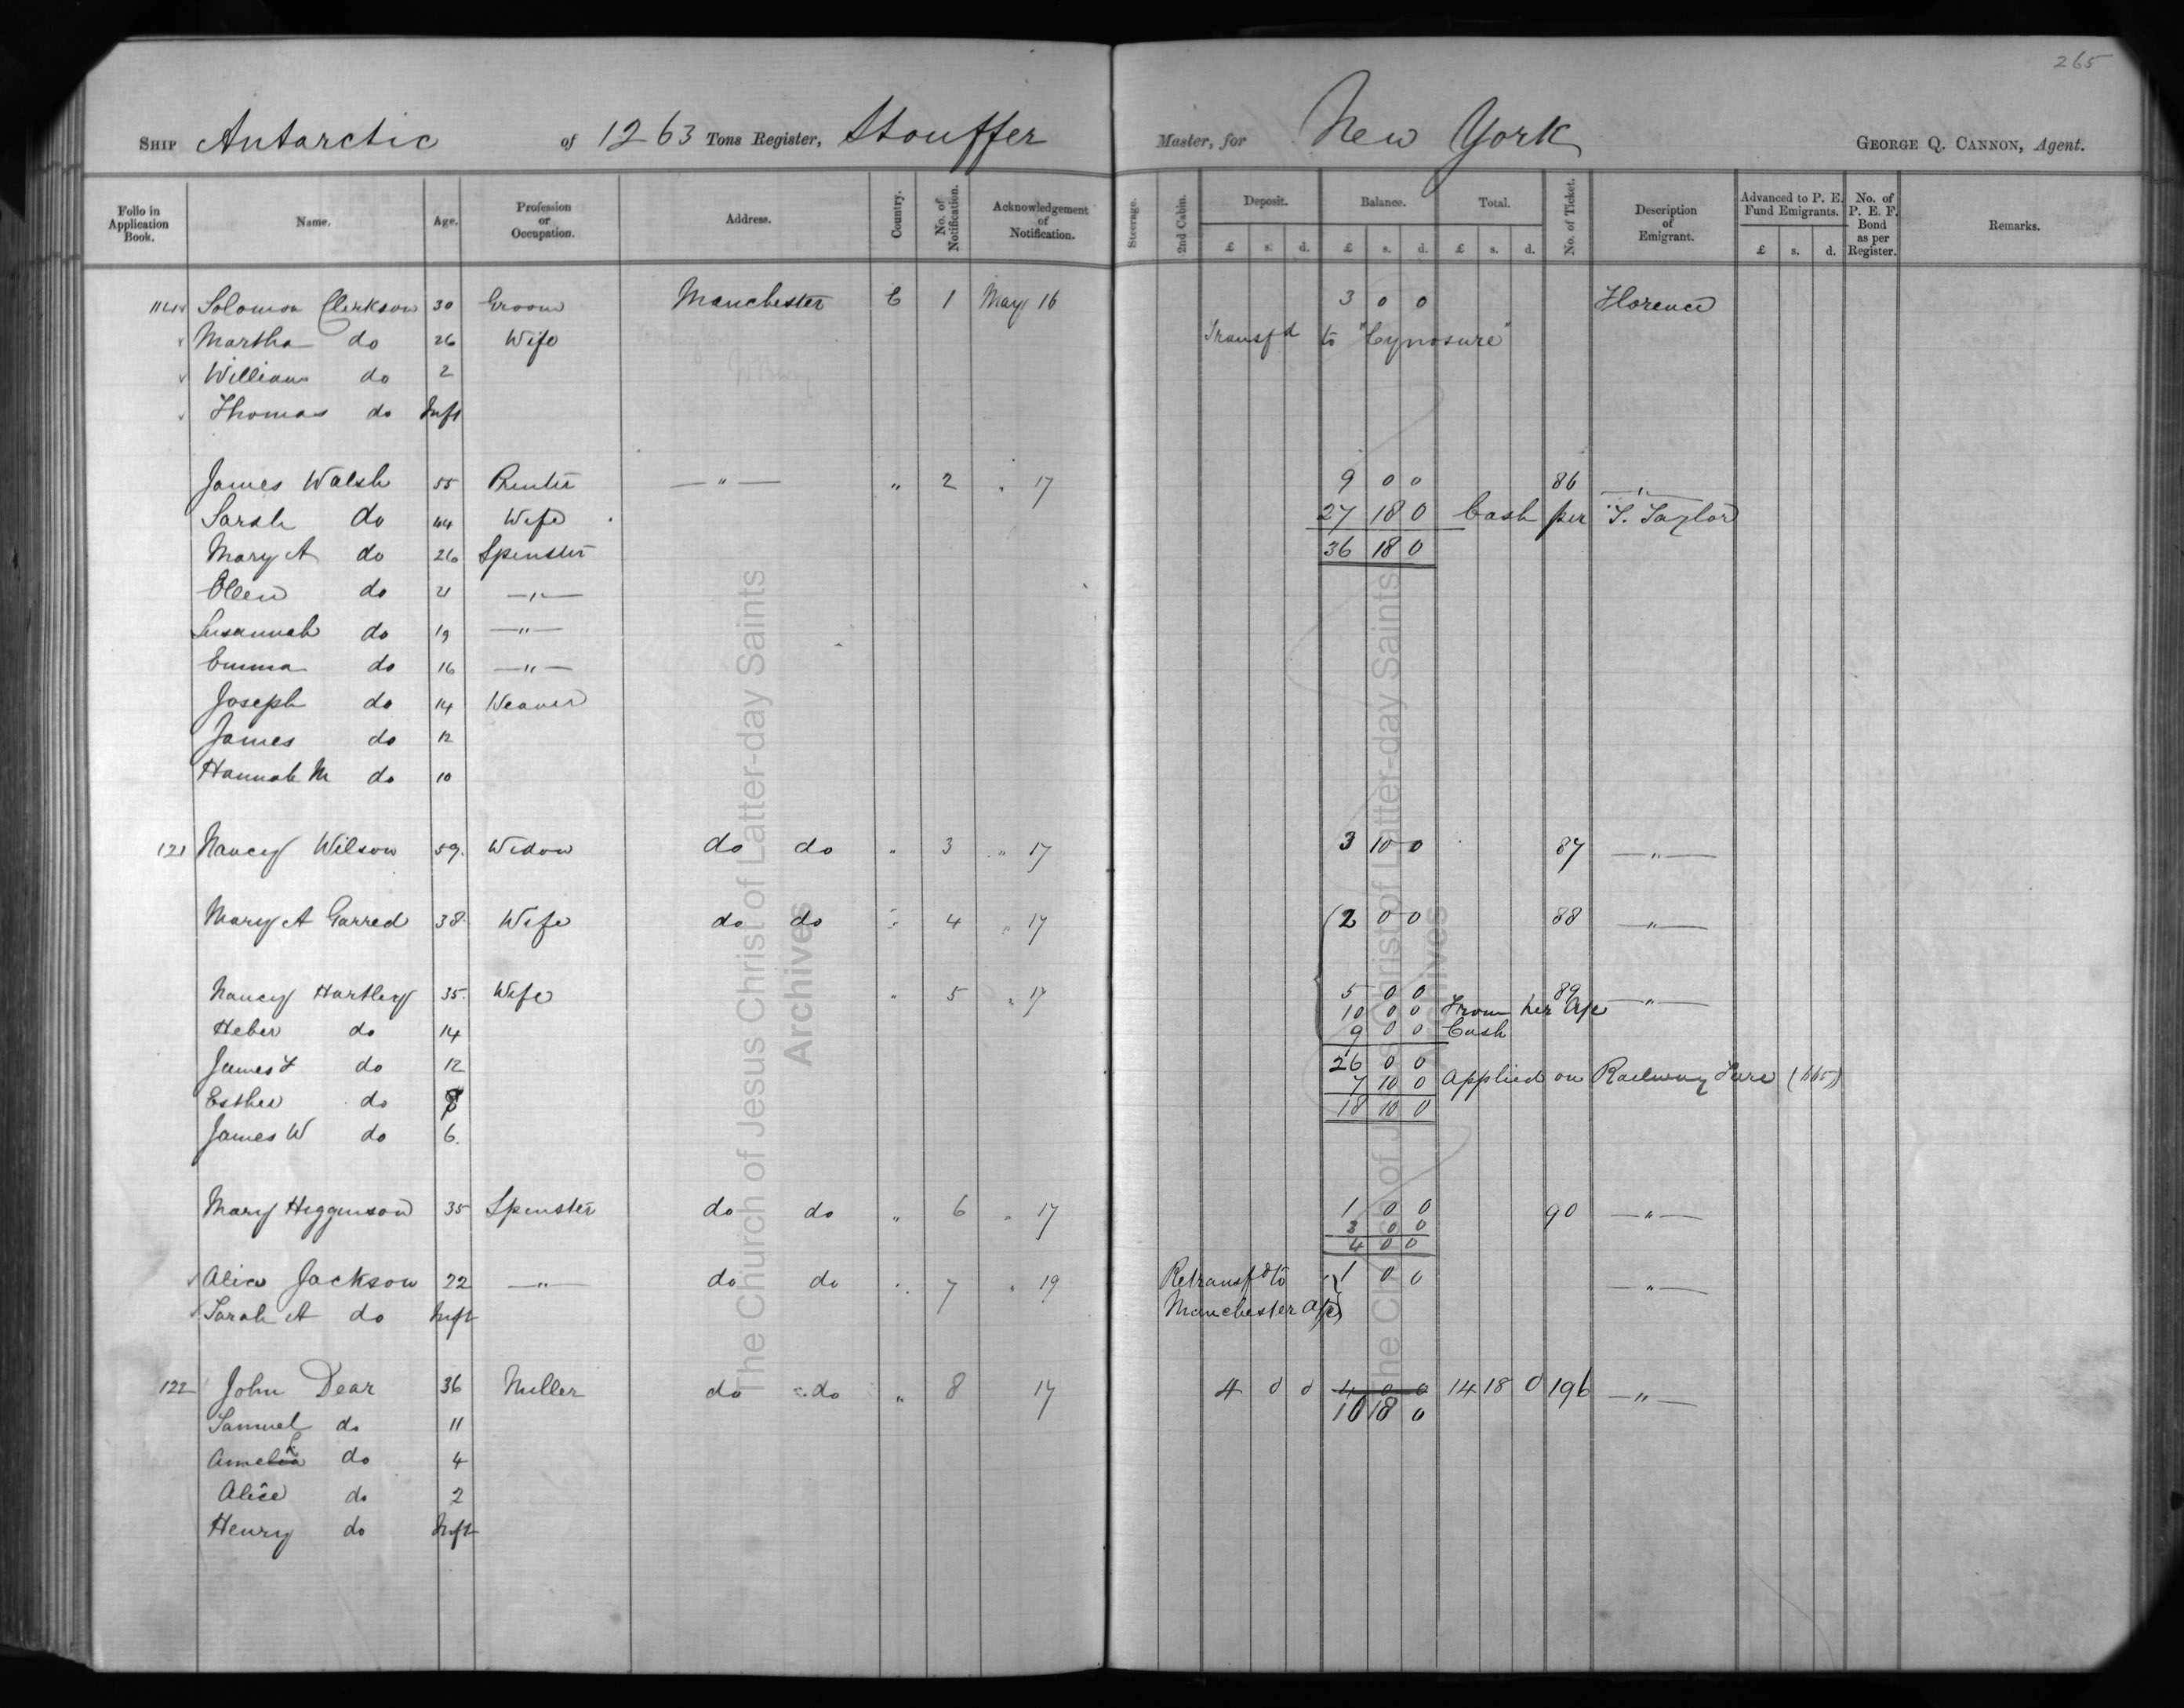 265
SHIP Antarctic of 1263 Tons Register, Stouffer Master, for New York GEORGE Q. CANNON, Agent.
Folio in Application Book. Name. Age. Profession or Occupation. Address. Country. No. of Notification. Acknowledgement of Notification. Steerage. 2nd Cabin. Deposit. Balance. Total. No. of Ticket. Description of Emigrant. Advanced to P. E. Fund Emigrants. No. of P. E. F. Bond as per Register. Remarks.
£ s. d. £ s. d. £ s. d. £ s. d.
Solomon Clerkson 30 Groom Manchester E 1 May 16 3 0 0 Florence
Martha do 26 Wife Transfd to "Cynosure"
William do 2
Thomas do Inft
James Walsh 55 Printer — " — " 2 " 17 9 0 0 86 — " —
Sarah do 44 Wife 27 18 0 Cash per T. Taylor
Mary A do 26 Spinster 36 18 0
Ellen do 21 — " —
Susannah do 19 — " —
Emma do 16 — " —
Joseph do 14 Weaver
James do 12
Hannah M do 10
121 Nancy Wilson 59 Widow do do " 3 " 17 3 10 0 87 — " —
Mary A Garred 38 Wife do do " 4 " 17 2 0 0 88 — " —
Nancy Hartley 35 Wife " 5 " 17 5 0 0 89 — " —
10 0 0 From her A/c
Heber do 14 9 0 0 Cash
James F do 12 26 0 0
7 10 0 Applied on Railway Fare
Esther do 8 18 10 0
James W do 6.
Mary Higginson 35 Spinster do do " 6 " 17 1 0 0 90 — " —
3 0 0
4 0 0
Alice Jackson 22 — " — do do " 7 " 19 Retransfd to 1 0 0 — " —
Sarah A do Inft Manchester A/c
122 John Dear 36 Miller do do " 8 17 4 0 0 4 0 0 14 18 0 196 — " —
10 18 0
Samuel do 11
Amelia do 4
Alice do 2
Henry do Inft
The Church of Jesus Christ of Latter-day Saints
Archives
The Church of Jesus Christ of Latter-day Saints
Archives